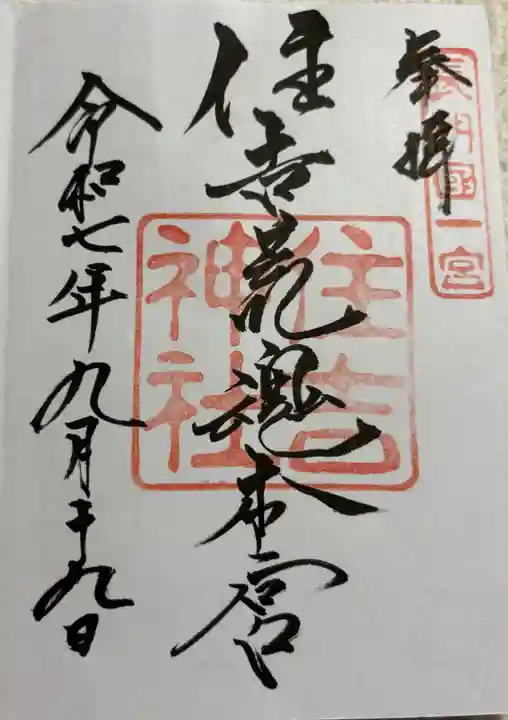 奉拝
長門国一宮
住吉荒魂本宮
住吉
神社
令和七年九月十九日